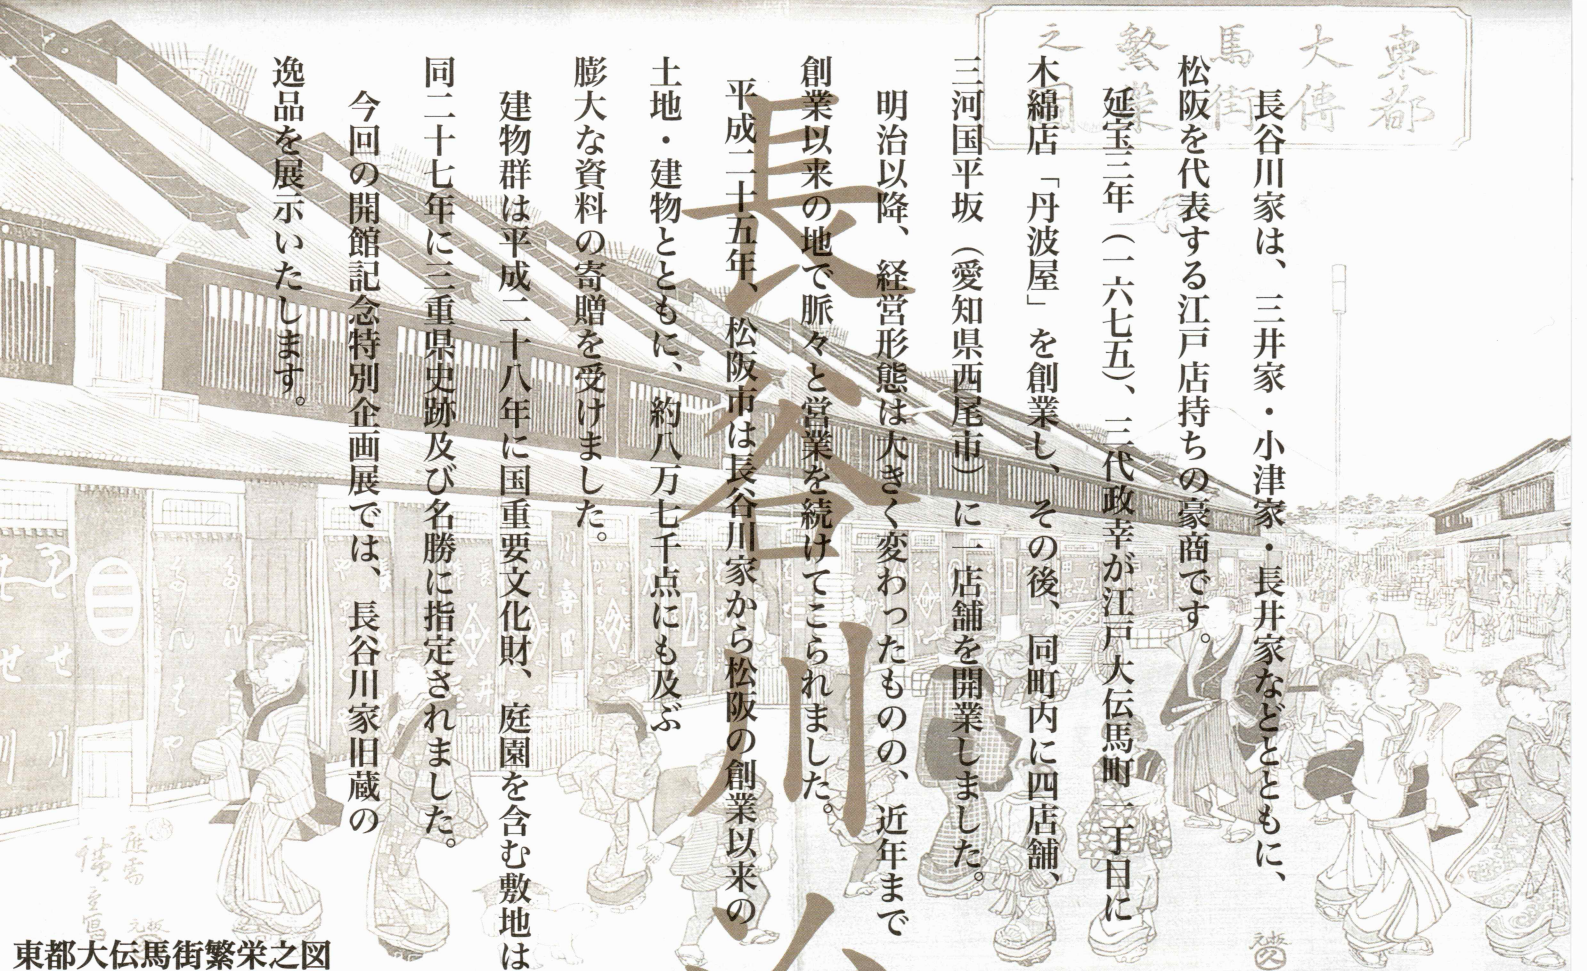 長谷川家は、三井家・小津家・長井家などとともに、
松阪を代表する江戸店持ちの豪商です。
延宝三年（一六七五）、三代政幸が江戸大伝馬町一丁目に
木綿店「丹波屋」を創業し、その後、同町内に四店舗、
三河国平坂（愛知県西尾市）に一店舗を開業しました。
明治以降、経営形態は大きく変わったものの、近年まで
創業以来の地で脈々と営業を続けてこられました。
平成二十五年、松阪市は長谷川家から松阪の創業以来の
土地・建物とともに、約八万七千点にも及ぶ
膨大な資料の寄贈を受けました。
建物群は平成二十八年に国重要文化財、庭園を含む敷地は
同二十七年に三重県史跡及び名勝に指定されました。
今回の開館記念特別企画展では、長谷川家旧蔵の
逸品を展示いたします。
長谷川
東都
大傳
馬街
繁栄
之図
東都大伝馬街繁栄之図